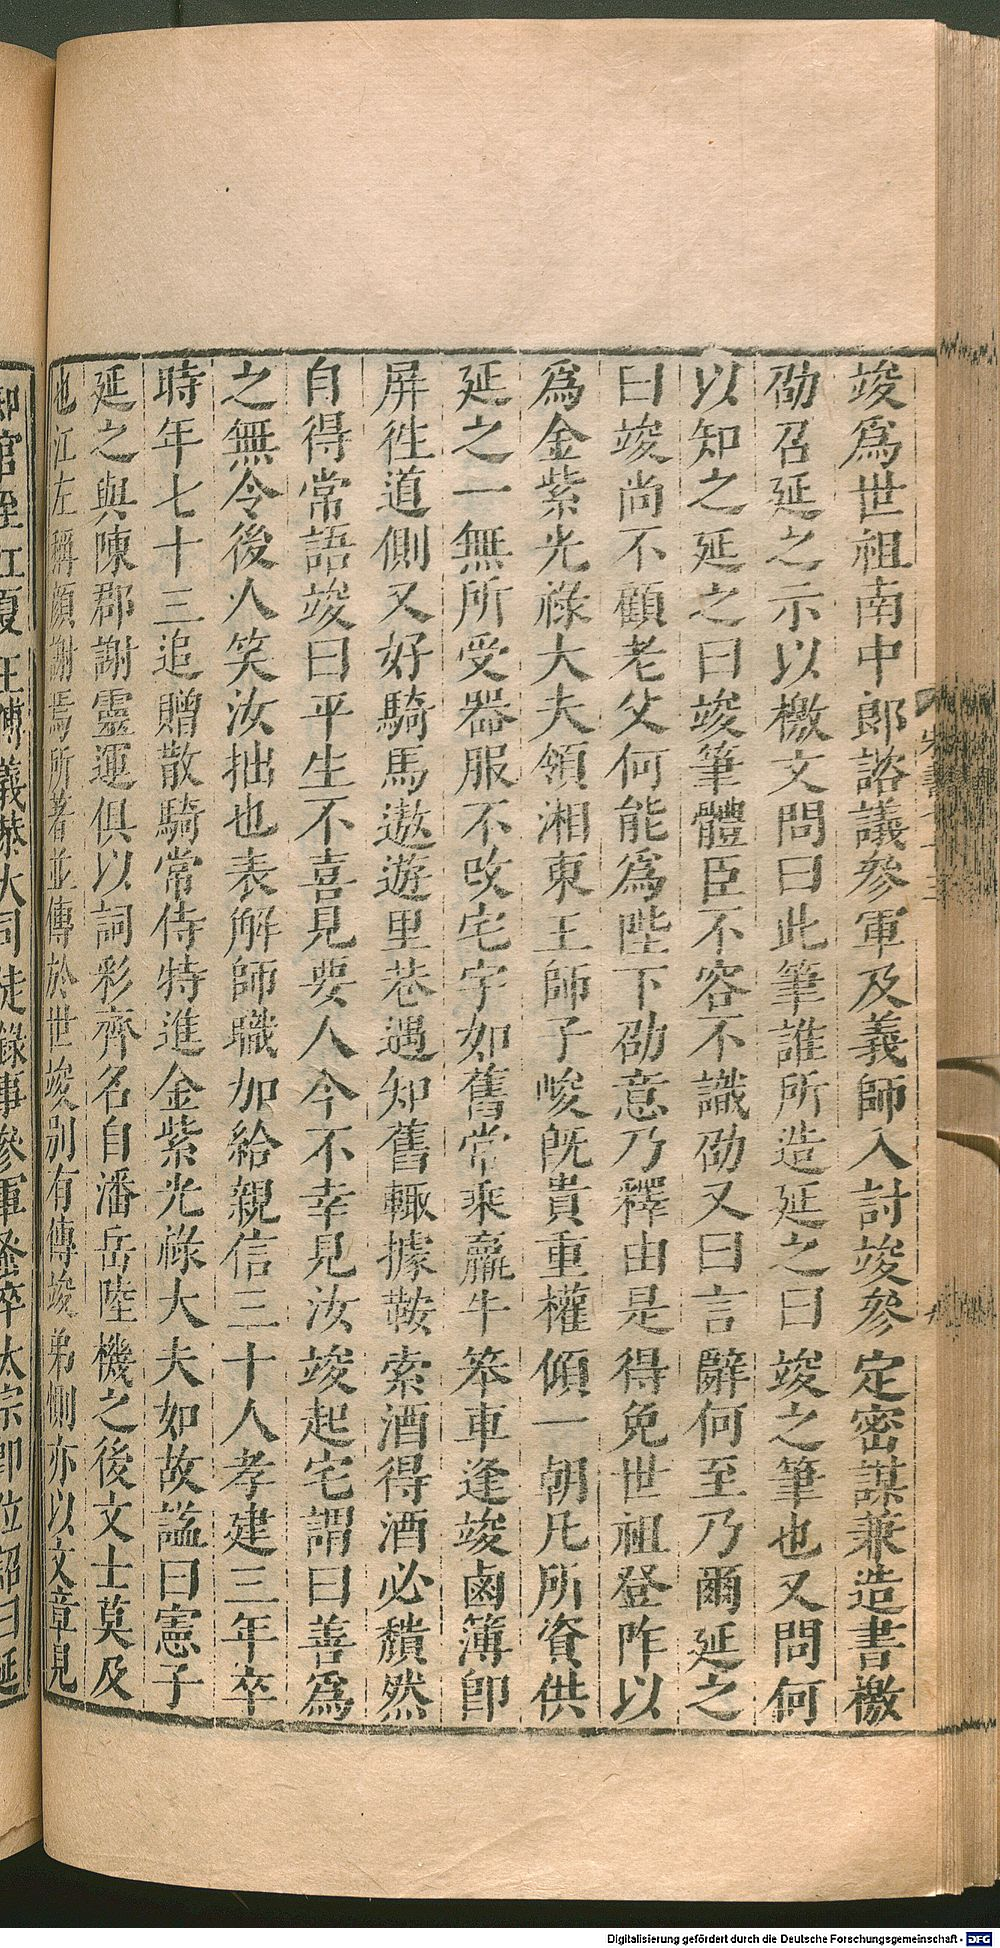 竣爲世祖南中郎諮議參軍及義師入討竣參定密謀兼造書檄
劭召延之示以檄文問曰此筆誰所造延之曰竣之筆也又問何
以知之延之曰竣筆體臣不容不識劭又曰言辭何至乃爾延之
曰竣尚不顧老父何能爲陛下劭意乃釋由是得免世祖登阼以
爲金紫光祿大夫領湘東王師子峻旣貴重權傾一朝凡所資供
延之一無所受器服不改宅宇如舊常乘羸牛笨車逢竣鹵簿卽
屏徃道側又好騎馬遨遊里巷遇知舊輒據鞍索酒得酒必頹然
自得常語竣曰平生不喜見要人今不幸見汝竣起宅謂曰善爲
之無令後人笑汝拙也表解師職加給親信三十人孝建三年卒
時年七十三追贈散騎常侍特進金紫光祿大夫如故諡曰憲子
延之與陳郡謝靈運俱以詞彩齊名自潘岳陸機之後文士莫及
也江左稱顏謝焉所著並傳於世竣別有傳竣弟惻亦以文章見
江夏王傅義恭大司徒錄事參軍蚤卒太宗卽位詔曰延
Digitalisierung gefördert durch die Deutsche Forschungsgemeinschaft - DFG